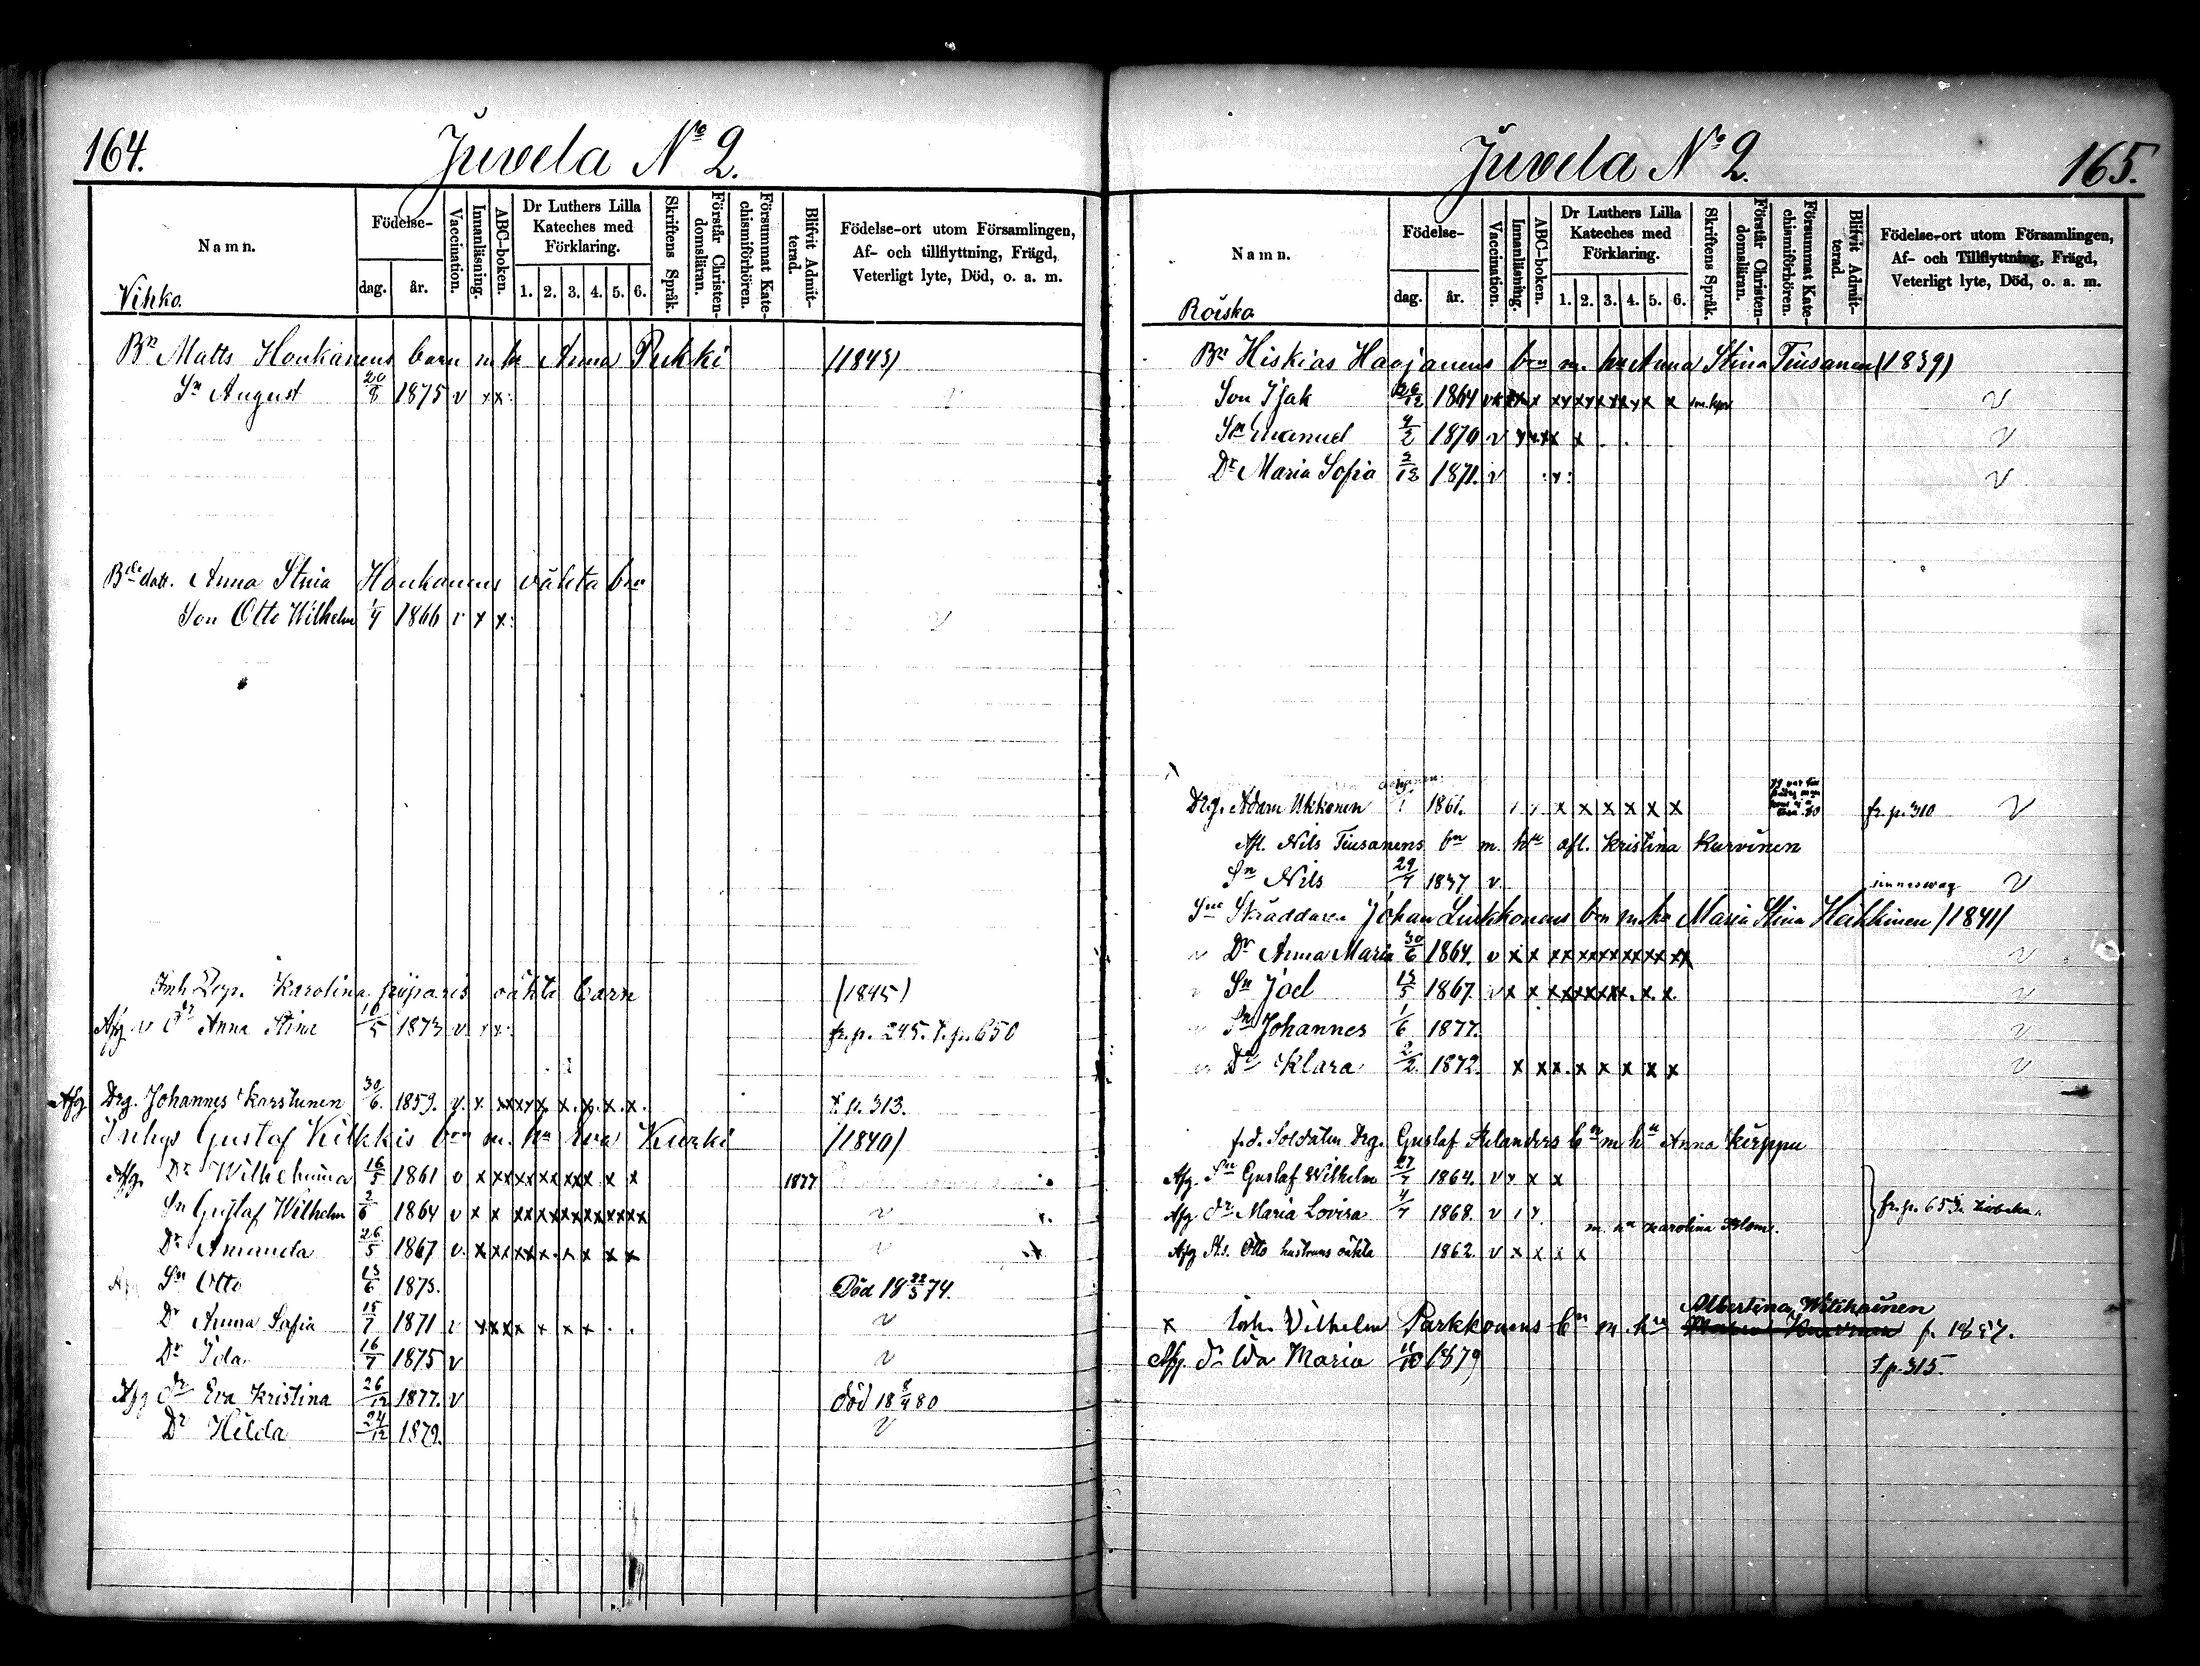 164.
Juvela No 2.
Namn.
Födelse-
dag.
år.
Vaccination.
Innanläsning.
ABC-boken.
Dr Luthers Lilla Kateches med Förklaring.
1. 2. 3. 4. 5. 6.
Skriftens Språk.
Förstår Christendomsläran.
Försummat Katechismiförhören.
Blifvit Admitterad.
Födelse-ort utom Församlingen, Af- och tillflyttning, Frägd, Veterligt lyte, Död, o. a. m.
Vihko.
Bn Matts Honkanens barn m h Anna Pukki (1843)
Sn August 20/8 1875 v x x:
Bde dott. Anna Stina Honkanens oäkta bn
Son Otto Wilhelm 1/4 1866 v x x:
Inh Karolina oäkta barn (1845)
Afg v dr Anna Stina 10/5 1873 v. fr. p. 245. t. p. 650
Afg Drg. Johannes Karstunen 30/6. 1859. v. x xxxx x. x. x. x. t. p. 313.
Inhys Gustaf Kilkkis bn m. hu Eva Kurki (1840)
Afg. Dr Wilhelmina 16/5 1861 v x xxxxxxxx x x 1877
Sn Gustaf Wilhelm 2/6 1864 v x x xxxxxxxxxxxx v
Dr Amanda 26/5 1867 v. x xxxx x x x x v
Sn Otto 13/6 1873. Död 18 22/3 74.
Dr Anna Sofia 15/7 1871 v xxxx x x x v
Dr Ida 16/7 1875 v v
Afg dr Eva Kristina 26/12 1877. v död 18 8/4 80
Dr Hilda 24/12 1879. v
Juvela No 2.
165.
Namn.
Födelse-
dag.
år.
Vaccination.
Innanläsning.
ABC-boken.
Dr Luthers Lilla Kateches med Förklaring.
1. 2. 3. 4. 5. 6.
Skriftens Språk.
Förstår Christendomsläran.
Försummat Katechismiförhören.
Blifvit Admitterad.
Födelse-ort utom Församlingen, Af- och Tillflyttning, Frägd, Veterligt lyte, Död, o. a. m.
Roiska
Bn Hiskias Haajanens bn m. hu Anna Stina Tiusanen (1839)
Son Isak 26/12 1864 v
Sn Manuel 4/2 1870 v v
Dr Maria Sofia 3/12 1871. v v
Drg. Adam Ukkonen 1861. x x x x x x fr. p. 310 v
Afl. Nils Tiusanens bn m. hu afl. Kristina Kurvinen
Sn Nils 29/7 1837 v. v
Sne Skräddaren Johan Luukkonens bn m. hu Maria Stina Heikkinen (1841)
v Dr Anna Maria 30/6 1864. v x x xxxxxxxxxxx v
Sn Joel 15/5 1867. v x x xxxxxxx. x. x. v
Sn Johannes 1/6 1877. v
Dr Klara 2/2. 1872. x xx. x x x x x v
f. d. Soldaten Drg. Gustaf Relanders bn m hu Anna Kirppu
Afg. Sn Gustaf Wilhelm 27/7 1864. v x x x
Afg dr Maria Lovisa 4/7 1868. v fr. p. 653
m. hu Karolina Blom.
Afg Ss. Otto hustruns oäkta 1862. v x x x x
x Inh. Vilhelm Parkkonens bn m. hu Albertina Witikainen f. 1857.
Afg. dr Ida Maria 11/10 1879 t. p. 315.